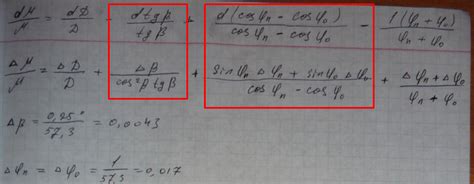 dμ/μ = dD/D - d tg β/tg β + d(cos φₙ - cos φ₀)/cos φₙ - cos φ₀ - 1(φₙ + φ₀)/φₙ + φ₀
Δμ/μ = ΔD/D + Δβ/cos²β tg β + sin φₙ Δφₙ + sin φ₀ Δφₙ/cos φₙ - cos φ₀ + Δφₙ + Δφ₀/φₙ + φ₀
Δβ = 0,25°/57,3 = 0,0043
Δφₙ = Δφ₀ = 1/57,3 = 0,017